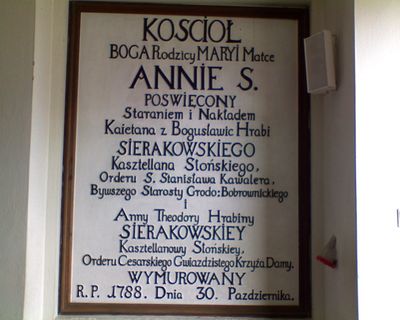 KOSCIOŁ
BOGARodzicy MARYI Matce
ANNIE S.
POSWIĘCONY
Staraniem i Nakładem
Kaietana z Bogusławic Hrabi
SIERAKOWSKIEGO
Kasztellana Słońskiego,
Orderu S. Stanisława Kawalera,
Bywszego Starosty Grodo: Bobrownickiego
i
Anny Theodory Hrabiny
SIERAKOWSKIEY
Kasztellanowy Słońskiey,
Orderu Cesarskiego Gwiazdzistego Krzyża Damy.
WYMUROWANY
R. P. 1788. Dnia 30. Pazdziernika.